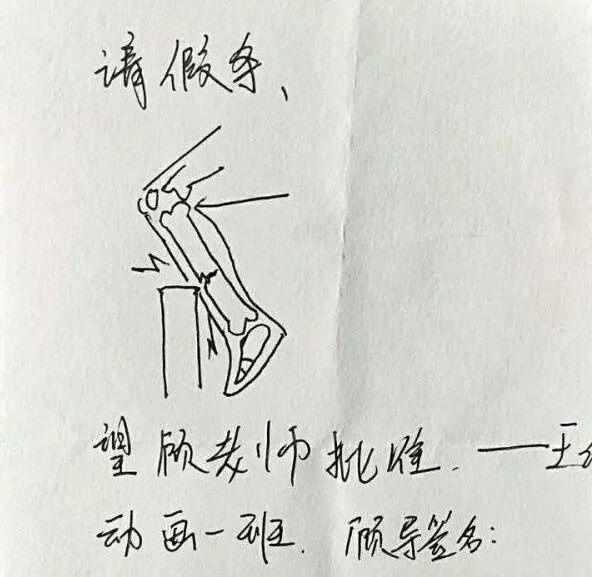 请假条、
望顾老师批准. ——王
动画一班. 顾导签名: